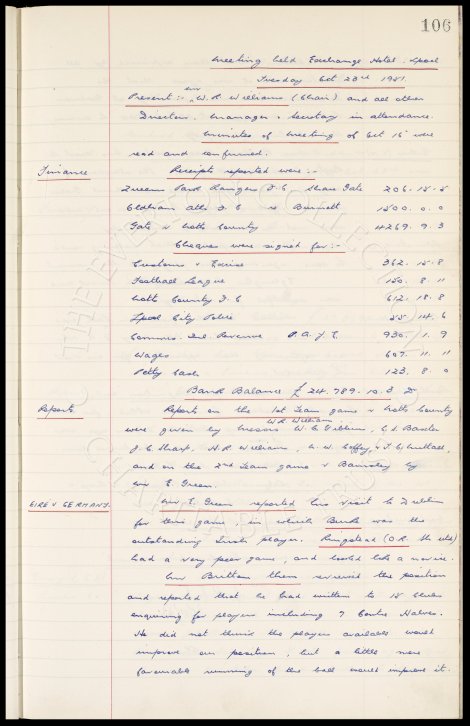 106
Meeting held Exchange Hotel. Lpool
Tuesday Oct 23rd 1951.
Present:- Mr W.R. Williams (Chair) and all other
Directors. Manager & Secretary in attendance.
Minutes of Meeting of Oct 16 were
read and confirmed.
Finance Receipts reported were:-
Queens Park Rangers F.C. Share Gate 206. 15. 5
Oldham Ath F.C. re Burnett 1500. 0. 0
Gate v Notts County 4269. 9. 3
Cheques were signed for:-
Customs & Excise 362. 15. 8
Football League 150. 8. 11
Notts County F.C. 612. 18. 8
Lpool City Police 55. 14. 6
Commis. Inl. Revenue P.A.Y.E. 930. 1. 9
Wages 607. 11. 11
Petty Cash 123. 8. 0
Bank Balance £24. 789. 10. 3
Reports Reports on the 1st Team game v Notts County
W.R. Williams
were given by Messrs W.C. Gibbins, C.S. Baxter
J.C. Sharp. N.R. Williams, N.W. Coffey, & T.C. Nuttall,
and on the 2nd Team game v Barnsley by
Mr E. Green.
EIRE V GERMANY. Mr E. Green reported his visit to Dublin
for this game, in which Burke was the
outstanding Irish player. Ringstead (O.R. Sh. Utd)
had a very poor game, and looked like a novice.
Mr Britton then reviewed the position
and reported that he had written to 15 Clubs
enquiring for players including 7 Centre Halves.
He did not think the players available would
improve our position, but a little more
favourable running of the ball would improve it.
THE EVERTON COLLECTION
CHARITABLE TRUST